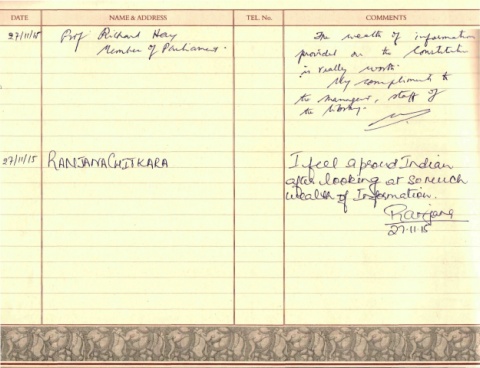 DATE NAME & ADDRESS TEL. No. COMMENTS
27/11/15 Prof Richard Hay
Member of Parliament.
The wealth of information
provided on the Constitution
is really worth.
My compliments to
the manager, staff of
the library.
27/11/15 RANJANA CHITKARA
I feel a proud Indian
after looking at so much
wealth of Information.
Ranjana
27.11.15